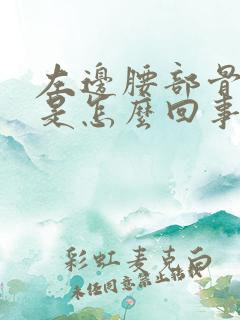 左邊腰部骨
是怎麼回事
彩虹麦克白
未经同意禁止转载